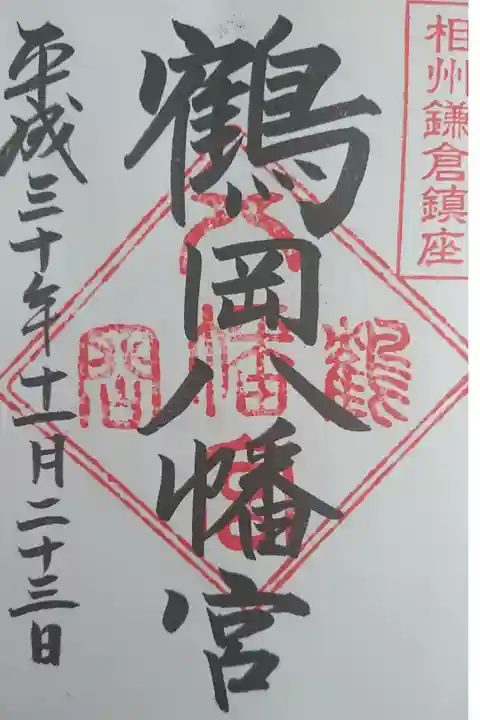 相州鎌倉鎮座
鶴岡八幡宮
平成三十年十一月二十三日